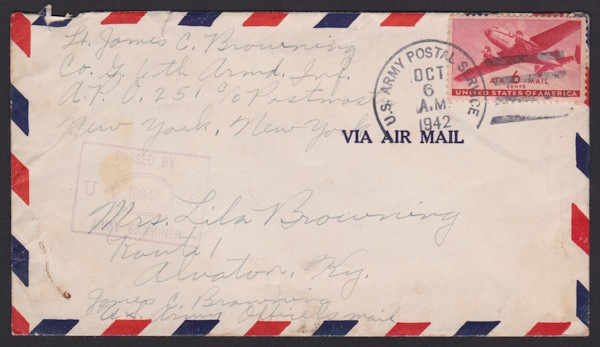 Lt. James C. Browning
Co. G 6th Armd. Inf.
A.P.O. 251 c/o Postmas
New York, New York
U.S. ARMY POSTAL SERVICE
OCT
6
A.M.
1942
AIR MAIL
6
CENTS
UNITED STATES OF AMERICA
VIA AIR MAIL
PASSED BY
U
EXAMINER
Mrs. Lila Browning
Route 1
Alvaton, Ky.
James C. Browning
U.S. Army Officers mail